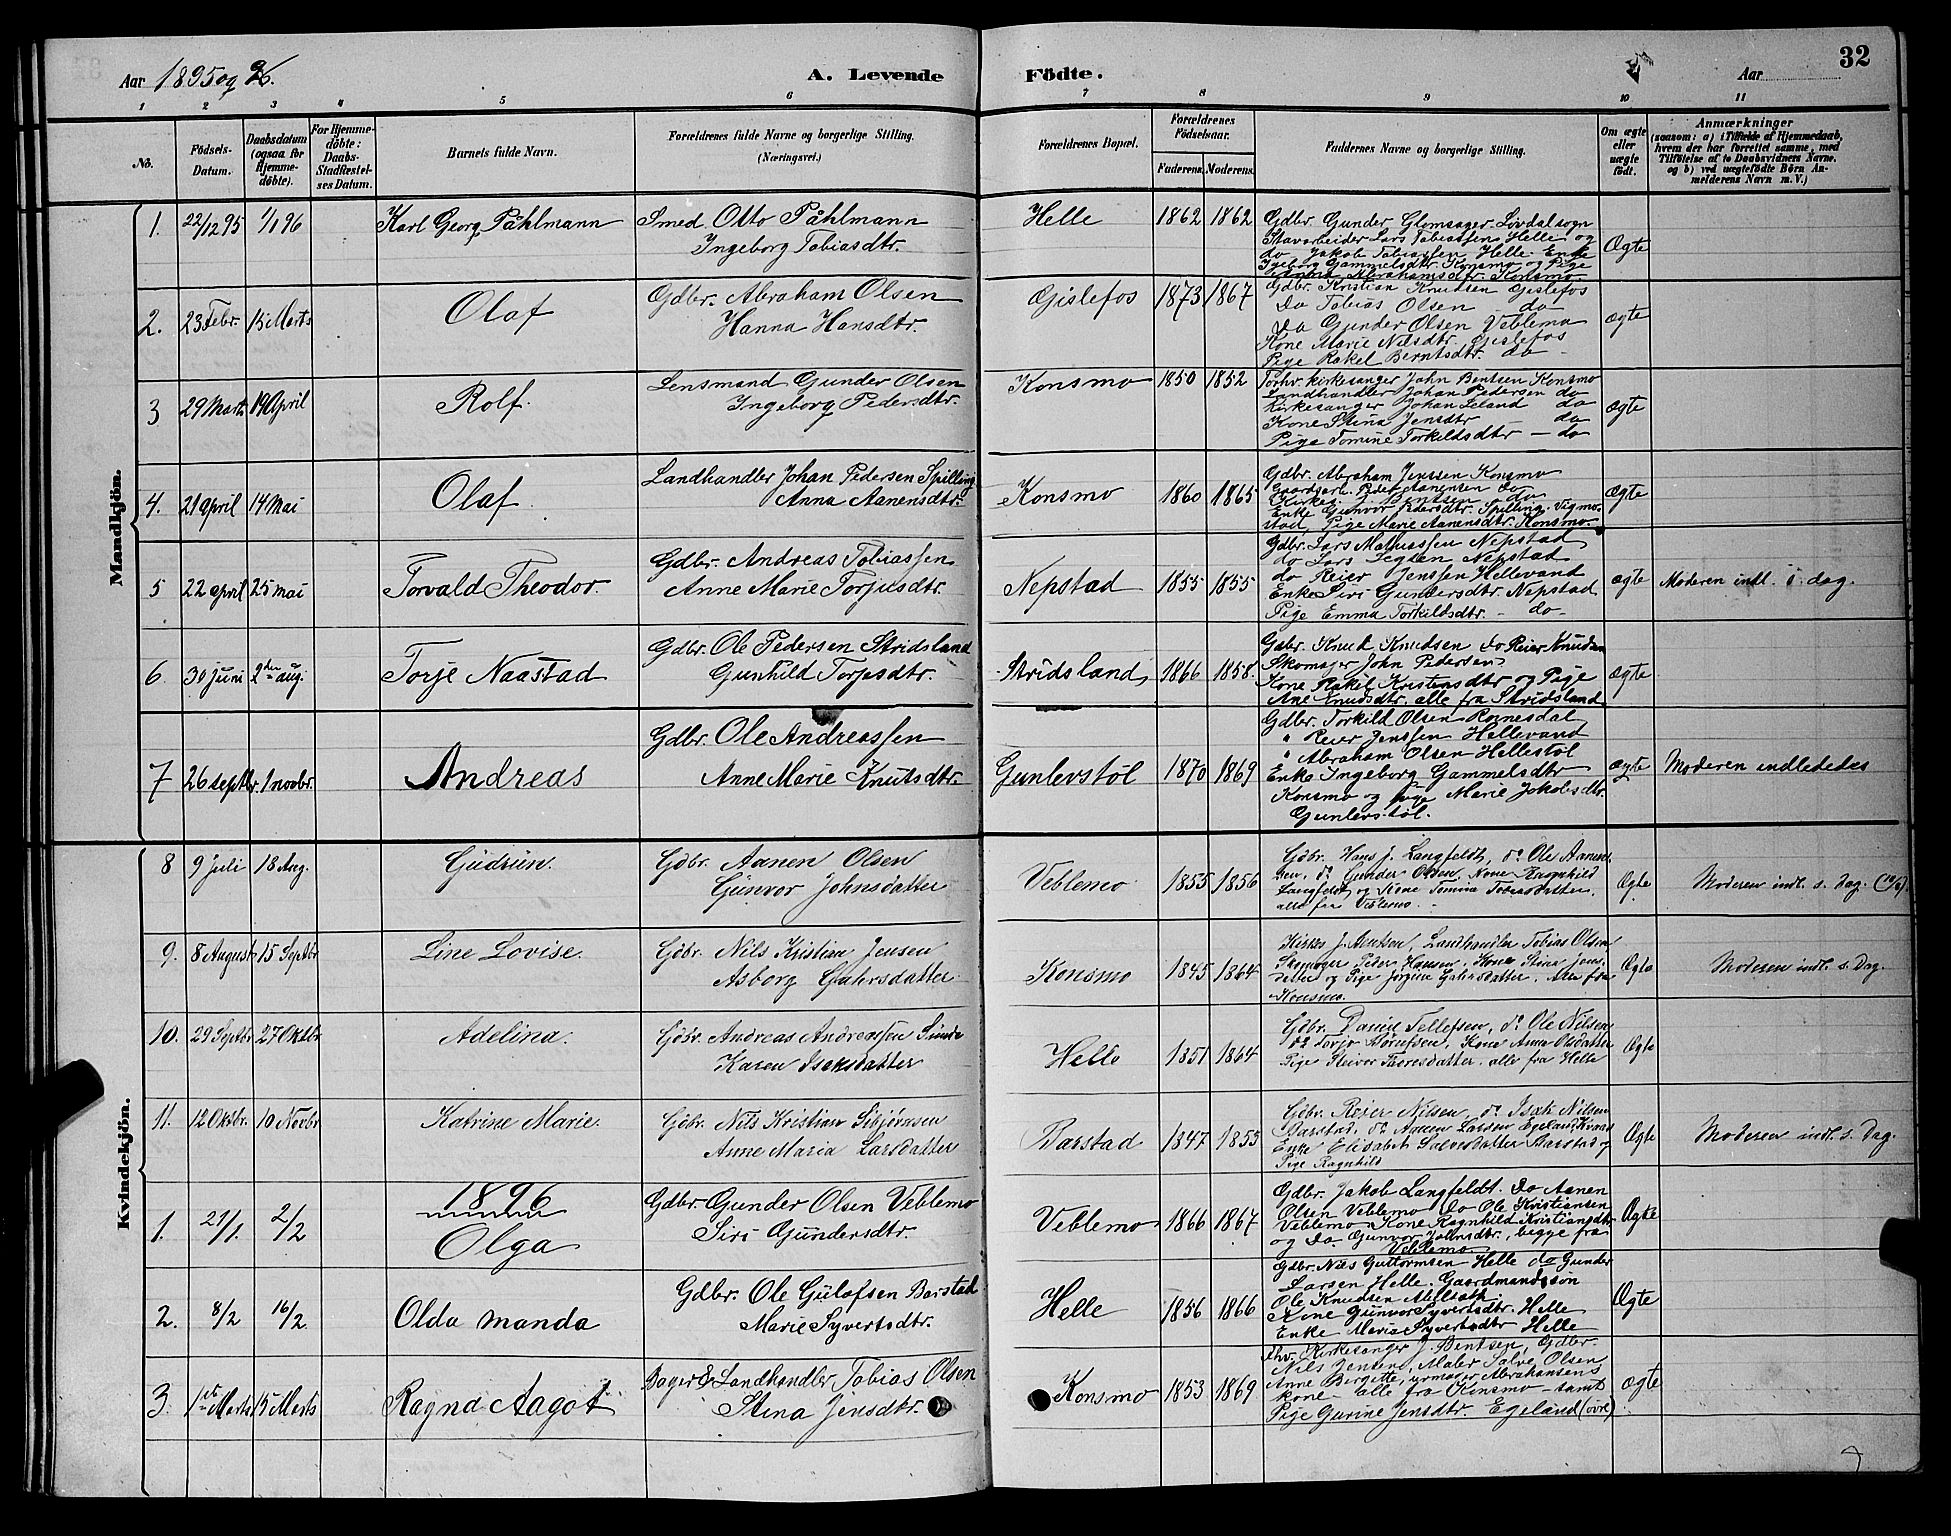 Aar 1895 og 96.
A. Levende Födte.
Aar
32
1 2 3 4 5 6 7 8 9 10 11
No.
Födsels-Datum.
Daabsdatum (ogsaa for Hjemme-döbte).
For Hjemme-döbte: Daabs-Stadfæstel-ses Datum.
Barnets fulde Navn.
Forældrenes fulde Navne og borgerlige Stilling. (Næringsvei.)
Forældrenes Bopæl.
Forældrenes Födselsaar.
Faderens. Moderens.
Faddernes Navne og borgerlige Stilling.
Om ægte eller uægte födt.
Anmærkninger
(saasom: a) i Tilfælde af Hjemmedaab, hvem der har forrettet samme, med Tilföielse af to Daabsvidners Navne. og b) ved uægtefödte Börn An-melderens Navn m. V.)
Mandkjön.
1. 22/12 95 1/1 96 Karl Georg Påhlmann
Smed Otto Påhlmann
Ingeborg Tobiasdtr.
Helle 1862 1862
Gdbr. Gunder Glomsager Lövdal sogn
Stavarbeider Lars Tobiassen Helle og
do Jakob Tobiassen Helle. Enke
Igeborg Gammelsdtr. Konsmo og Pige
Abrahamsdtr. Konsmo
Ægte
2. 23 Febr. 15 Marts Olaf
Gdbr. Abraham Olsen
Hanna Hansdtr.
Gislefos 1873 1867
Gdbr. Kristian Knudsen Gislefos
Do Tobias Olsen do
Do Gunder Olsen Veblemo
Kone Marie Nilsdtr. Gislefos
Pige Rakel Berntsdtr. do
ægte
3 29 Marts 19 April Rolf.
Lensmand Gunder Olsen
Ingeborg Pedersdtr.
Konsmo 1850 1852
Forhv. kirkesanger John Bentsen Konsmo
Landhandler Johan Pedersen do
Kirkesanger Johan Leland do
Kone Stina Jensdtr do
Pige Tomine Torkildsdtr — do
ægte
4. 21 April 14 Mai Olaf.
Landhandler Johan Pedersen Spilling
Anna Aanensdtr.
Konsmo 1860 1865
Gdbr. Abraham Jenssen Konsmo
Gaardarb. Peder Aanensen do
Kirkes. J. Bentsen do
Enke Gunvor Pedersdtr. Spilling. Vigmo-
stad, Pige Marie Aanensdtr. Konsmo.
ægte
5 22 april 25 mai Torvald Theodor.
Gdbr. Andreas Tobiassen
Anne Marie Torjusdtr.
Nepstad 1855 1855
Gdbr. Lars Mathiassen Nepstad
do Lars Nepstad
do Reier Jenssen Hellevand
Enke Siri Gundersdtr. Nepstad
Pige Emma Torkildsdtr. — do —
ægte Moderen indl. i dag.
6. 30 juni 2den aug. Torje Naastad
Gdbr. Ole Pedersen Stridsland
Gunhild Torjesdtr.
Stridsland 1866 1858.
Gdbr. Knud Knudsen do Reier Knudsen
Skomager John Pedersen
Kone Rakel Kristensdtr og Pige
Ane Knudsdtr. alle fra Stridsland
ægte
7 26 septbr. 1 novbr. Andreas
Gdbr. Ole Andreassen
Anne Marie Knutsdtr.
Gunlevstöl 1870 1869
Gdbr. Torkild Olsen Roinesdal
" Reier Jenssen Hellevand
" Abraham Olsen Hellestöl
Enke Ingeborg Gammelsdtr
Konsmo og pige Marie Jakobsdtr.
Gunlevstöl.
ægte Moderen indlededes
Kvindekjön.
8 9 Juli 18 Aug. Gudrun.
Gdbr. Aanen Olsen
Gunvor Johnsdatter
Veblemo 1855 1856
Gdbr. Hans J. Langfeldt, do Ole Aanen-
sen, do Gunder Olsen, Kone Ragnhild
Langfeldt og Kone Tomine Tobiasdatter,
alle fra Veblemo.
Ægte Moderen indl. s. Dag.
9. 8 August 15 Septbr Line Lovise.
Gdbr. Nils Kristian Jensen
Asborg Gahrsdatter
Konsmo 1845 1864
Kirkes J. Bentsen, Landhandler Tobias Olsen
Skomager Peder Hansen, Kone Stina Jens-
datter og Pige Jorgine Gahrsdatter. Alle fra
Konsmo.
Ægte Moderen indl. s. Dag.
10. 29 Septbr 27 Oktbr Adelina.
Gdbr. Andreas Andreassen Sunde
Karen Isaksdatter
Helle 1851 1864
Gdbr. Daniel Tellefsen, do Ole Nilsen
do Torjo Kone Anne Olsdatter
Pige Thoresdatter, alle fra Helle
Ægte
11. 12 Oktbr. 10 Novbr Katrine Marie.
Gdbr. Nils Kristian Sibjörnsen
Anne Maria Larsdatter
Barstad 1847 1853
Gdbr. Reier Nilsen, do Isak Nilsen
Barstad, do Aanen Larsen Egeland, Kvaas
Enke Elisabeth Salvesdatter Barstad og
Pige Ragnhild
Ægte Moderen indl. s. Dag.
1896
1. 21/1. 2/2 Olga
Gdbr. Gunder Olsen Veblemo
Siri Gundersdtr.
Veblemo 1866 1867
Gdbr. Jakob Langfeldt. do Aanen
Olsen Veblemo do Ole Kristiansen
Veblemo Kone Ragnhild Kristiansdtr
og do Gunvor Johnsdtr., begge fra
Veblemo
Ægte
2. 8/2 16/2 Olda Manda
Gdbr. Ole Gulofsen Barstad
Marie Syvertsdtr.
Helle 1856 1866
Gdbr. Nils Guttormsen Helle do Gunder
Larsen Helle. Gaardmandssön
Ole Knudsen
Kone Gunvor Syvertsdtr. Helle
Enke Maria Syvertsdtr Helle
Ægte
3. 1ste Marts 15 Marts Ragna Aagot
Bager & Landhandler Tobias Olsen
Stina Jensdtr.
Konsmo 1853 1869
fhv. Kirkesanger J. Bentsen, Gdbr.
Nils Jensen, Maler Salve Olsen
Anne Bergitte, urmager Abrahamsens
kone — alle fra Konsmo — samt
Pige Gurine Jensdtr. Egeland (övre)
ægte